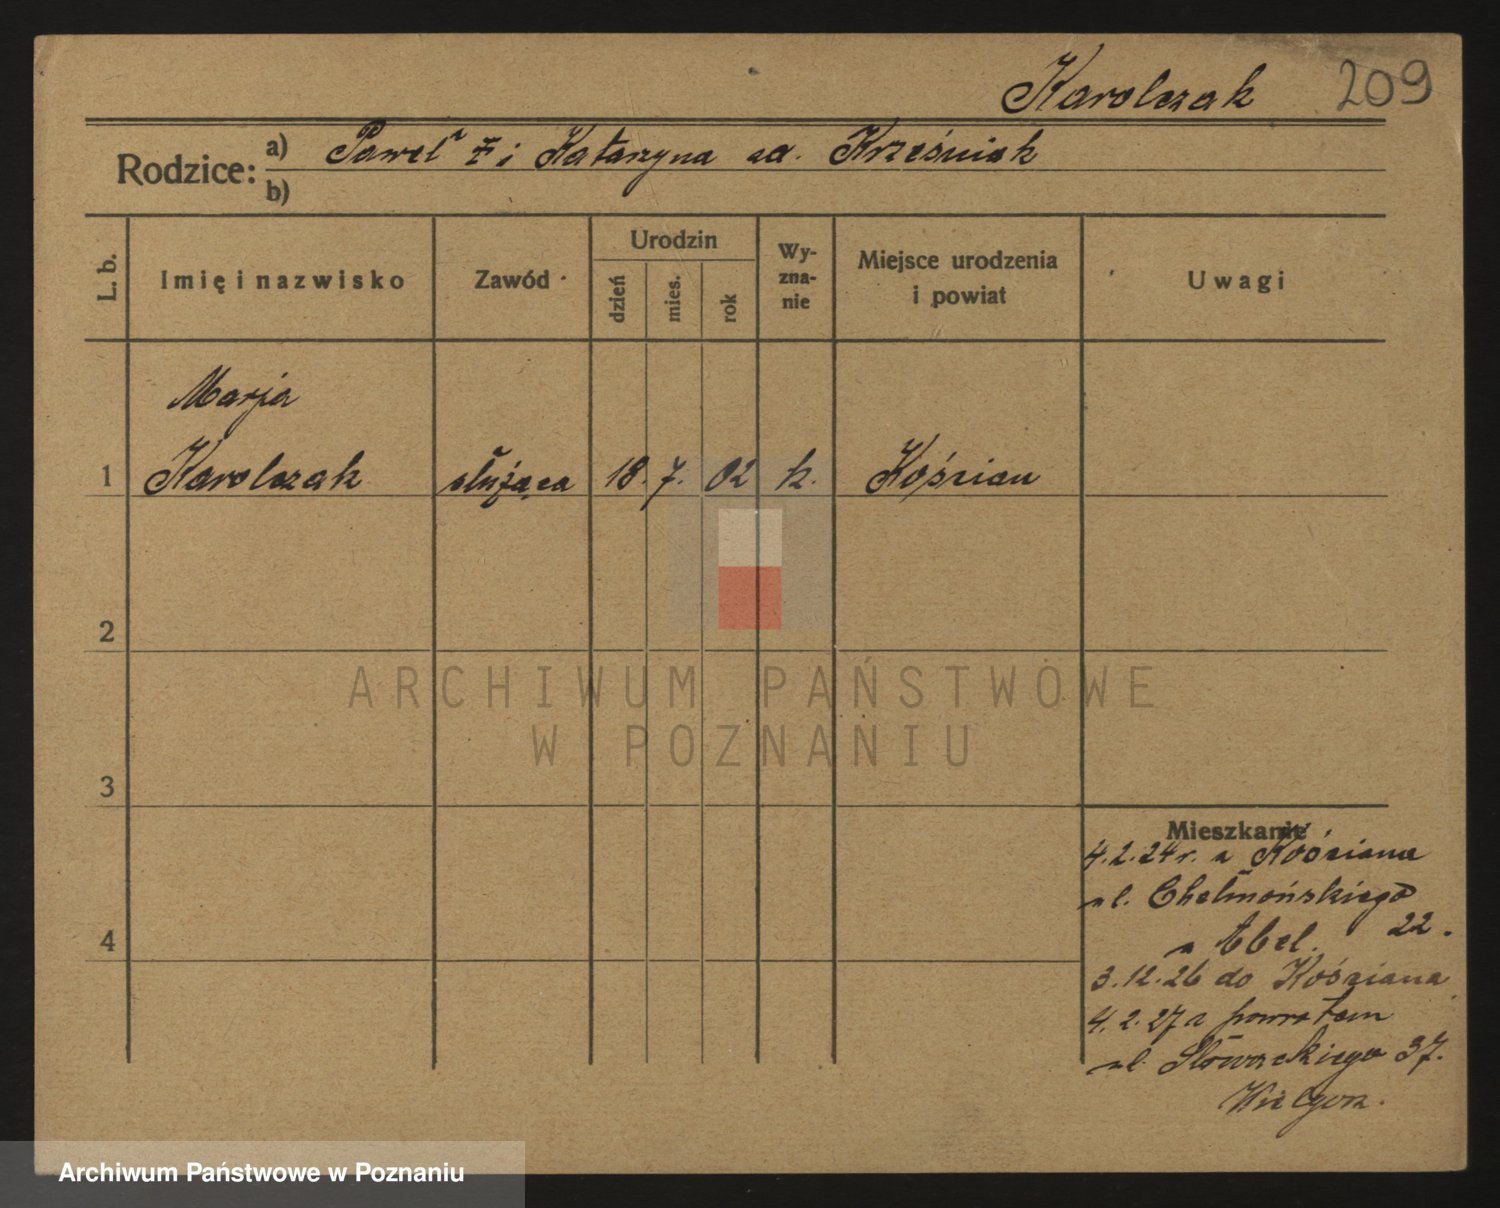 Karolczak 209
Rodzice: a) Paweł i Katarzyna Krześniak
b)
L. b. Imię i nazwisko Zawód Urodzin dzień mies. rok Wy-zna-nie Miejsce urodzenia i powiat Uwagi
Marja
1 Karolczak służąca 18. 7. 02 k. Kościan
2
3
4
Mieszkanie
4.2.24 r. z Kościana
ul. Chełmońskiego
22.
3.12.26 do Kościana
4.2.27 z powrotem
ul. Słowackiego 37.
ARCHIWUM PAŃSTWOWE
W POZNANIU
Archiwum Państwowe w Poznaniu